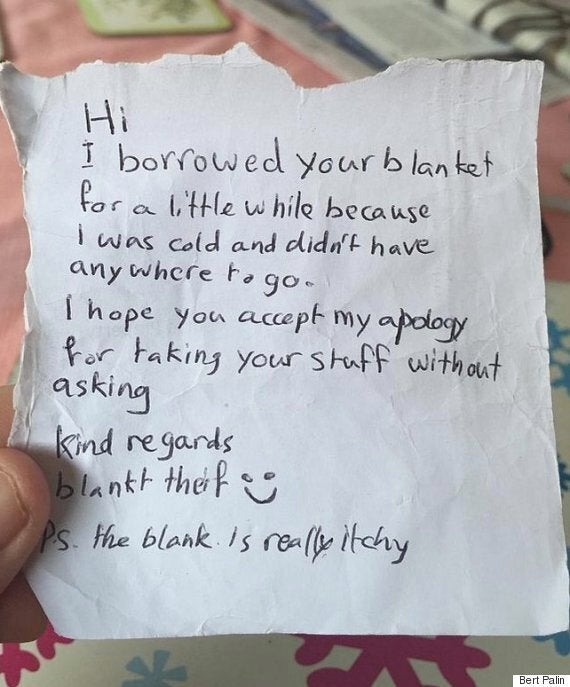 Hi
I borrowed your blanket
for a little while because
I was cold and didn't have
anywhere to go.
I hope you accept my apology
for taking your stuff without
asking
Kind regards
blankt theif
Ps. the blank. is really itchy
Bert Palin